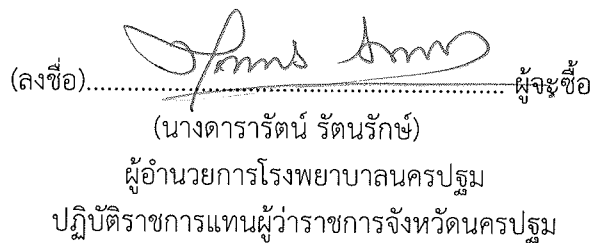 (ลงชื่อ)........................................................ ผู้จะซื้อ
(นางดารารัตน์ รัตนรักษ์)
ผู้อำนวยการโรงพยาบาลนครปฐม
ปฏิบัติราชการแทนผู้ว่าราชการจังหวัดนครปฐม